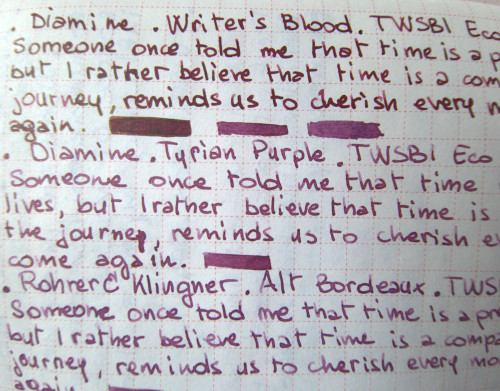 . Diamine . Writer's Blood . TWSBI Eco
Someone once told me that time is a p
but I rather believe that time is a com
journey, reminds us to cherish every m
again.
. Diamine . Tyrian Purple . TWSBI Eco
Someone once told me that time
lives, but I rather believe that time is
the journey, reminds us to cherish ev
come again.
. Rohrer & Klingner . Alt Bordeaux . TWS
Someone once told me that time is a pr
but I rather believe that time is a compa
journey, reminds us to cherish every mo
again